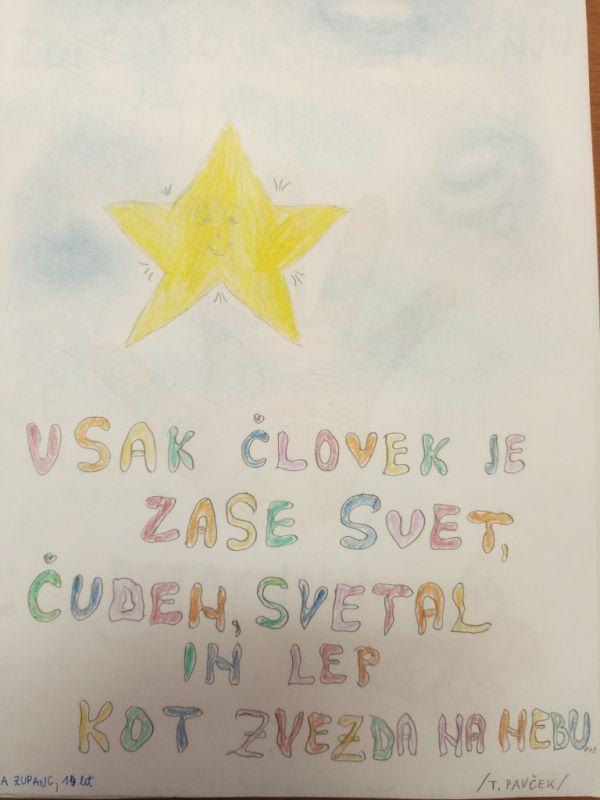 VSAK ČLOVEK JE
ZASE SVET,
ČUDEN, SVETAL
IN LEP
KOT ZVEZDA NA NEBU...
A ZUPANC, 14 let
/T. PAVČEK/